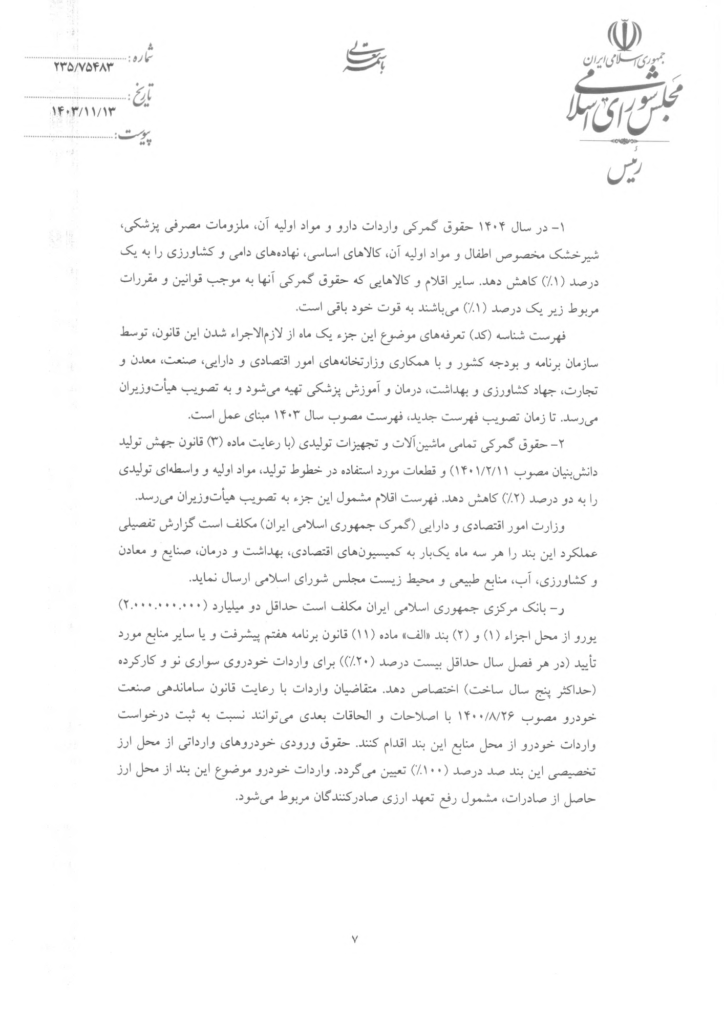 جمهوری اسلامی ایران
مجلس شورای اسلامی
رئیس
باسمه تعالی
شماره: ۲۳۵/۷۵۴۸۳
تاریخ: ۱۴۰۳/۱۱/۱۳
پیوست:
۱- در سال ۱۴۰۴ حقوق گمرکی واردات دارو و مواد اولیه آن، ملزومات مصرفی پزشکی،
شیرخشک مخصوص اطفال و مواد اولیه آن، کالاهای اساسی، نهاده‌های دامی و کشاورزی را به یک
درصد (۱٪) کاهش دهد. سایر اقلام و کالاهایی که حقوق گمرکی آنها به موجب قوانین و مقررات
مربوط زیر یک درصد (۱٪) می‌باشند به قوت خود باقی است.
فهرست شناسه (کد) تعرفه‌های موضوع این جزء یک ماه از لازم‌الاجراء شدن این قانون، توسط
سازمان برنامه و بودجه کشور و با همکاری وزارتخانه‌های امور اقتصادی و دارایی، صنعت، معدن و
تجارت، جهاد کشاورزی و بهداشت، درمان و آموزش پزشکی تهیه می‌شود و به تصویب هیأت‌وزیران
می‌رسد. تا زمان تصویب فهرست جدید، فهرست مصوب سال ۱۴۰۳ مبنای عمل است.
۲- حقوق گمرکی تمامی ماشین‌آلات و تجهیزات تولیدی (با رعایت ماده (۳) قانون جهش تولید
دانش‌بنیان مصوب ۱۴۰۱/۲/۱۱) و قطعات مورد استفاده در خطوط تولید، مواد اولیه و واسطه‌ای تولیدی
را به دو درصد (۲٪) کاهش دهد. فهرست اقلام مشمول این جزء به تصویب هیأت‌وزیران می‌رسد.
وزارت امور اقتصادی و دارایی (گمرک جمهوری اسلامی ایران) مکلف است گزارش تفصیلی
عملکرد این بند را هر سه ماه یک‌بار به کمیسیون‌های اقتصادی، بهداشت و درمان، صنایع و معادن
و کشاورزی، آب، منابع طبیعی و محیط زیست مجلس شورای اسلامی ارسال نماید.
ر- بانک مرکزی جمهوری اسلامی ایران مکلف است حداقل دو میلیارد (۲.۰۰۰.۰۰۰.۰۰۰)
یورو از محل اجزاء (۱) و (۲) بند «الف» ماده (۱۱) قانون برنامه هفتم پیشرفت و یا سایر منابع مورد
تأیید (در هر فصل سال حداقل بیست درصد (۲۰٪)) برای واردات خودروی سواری نو و کارکرده
(حداکثر پنج سال ساخت) اختصاص دهد. متقاضیان واردات با رعایت قانون ساماندهی صنعت
خودرو مصوب ۱۴۰۰/۸/۲۶ با اصلاحات و الحاقات بعدی می‌توانند نسبت به ثبت درخواست
واردات خودرو از محل منابع این بند اقدام کنند. حقوق ورودی خودروهای وارداتی از محل ارز
تخصیصی این بند صد درصد (۱۰۰٪) تعیین می‌گردد. واردات خودرو موضوع این بند از محل ارز
حاصل از صادرات، مشمول رفع تعهد ارزی صادرکنندگان مربوط می‌شود.
۷